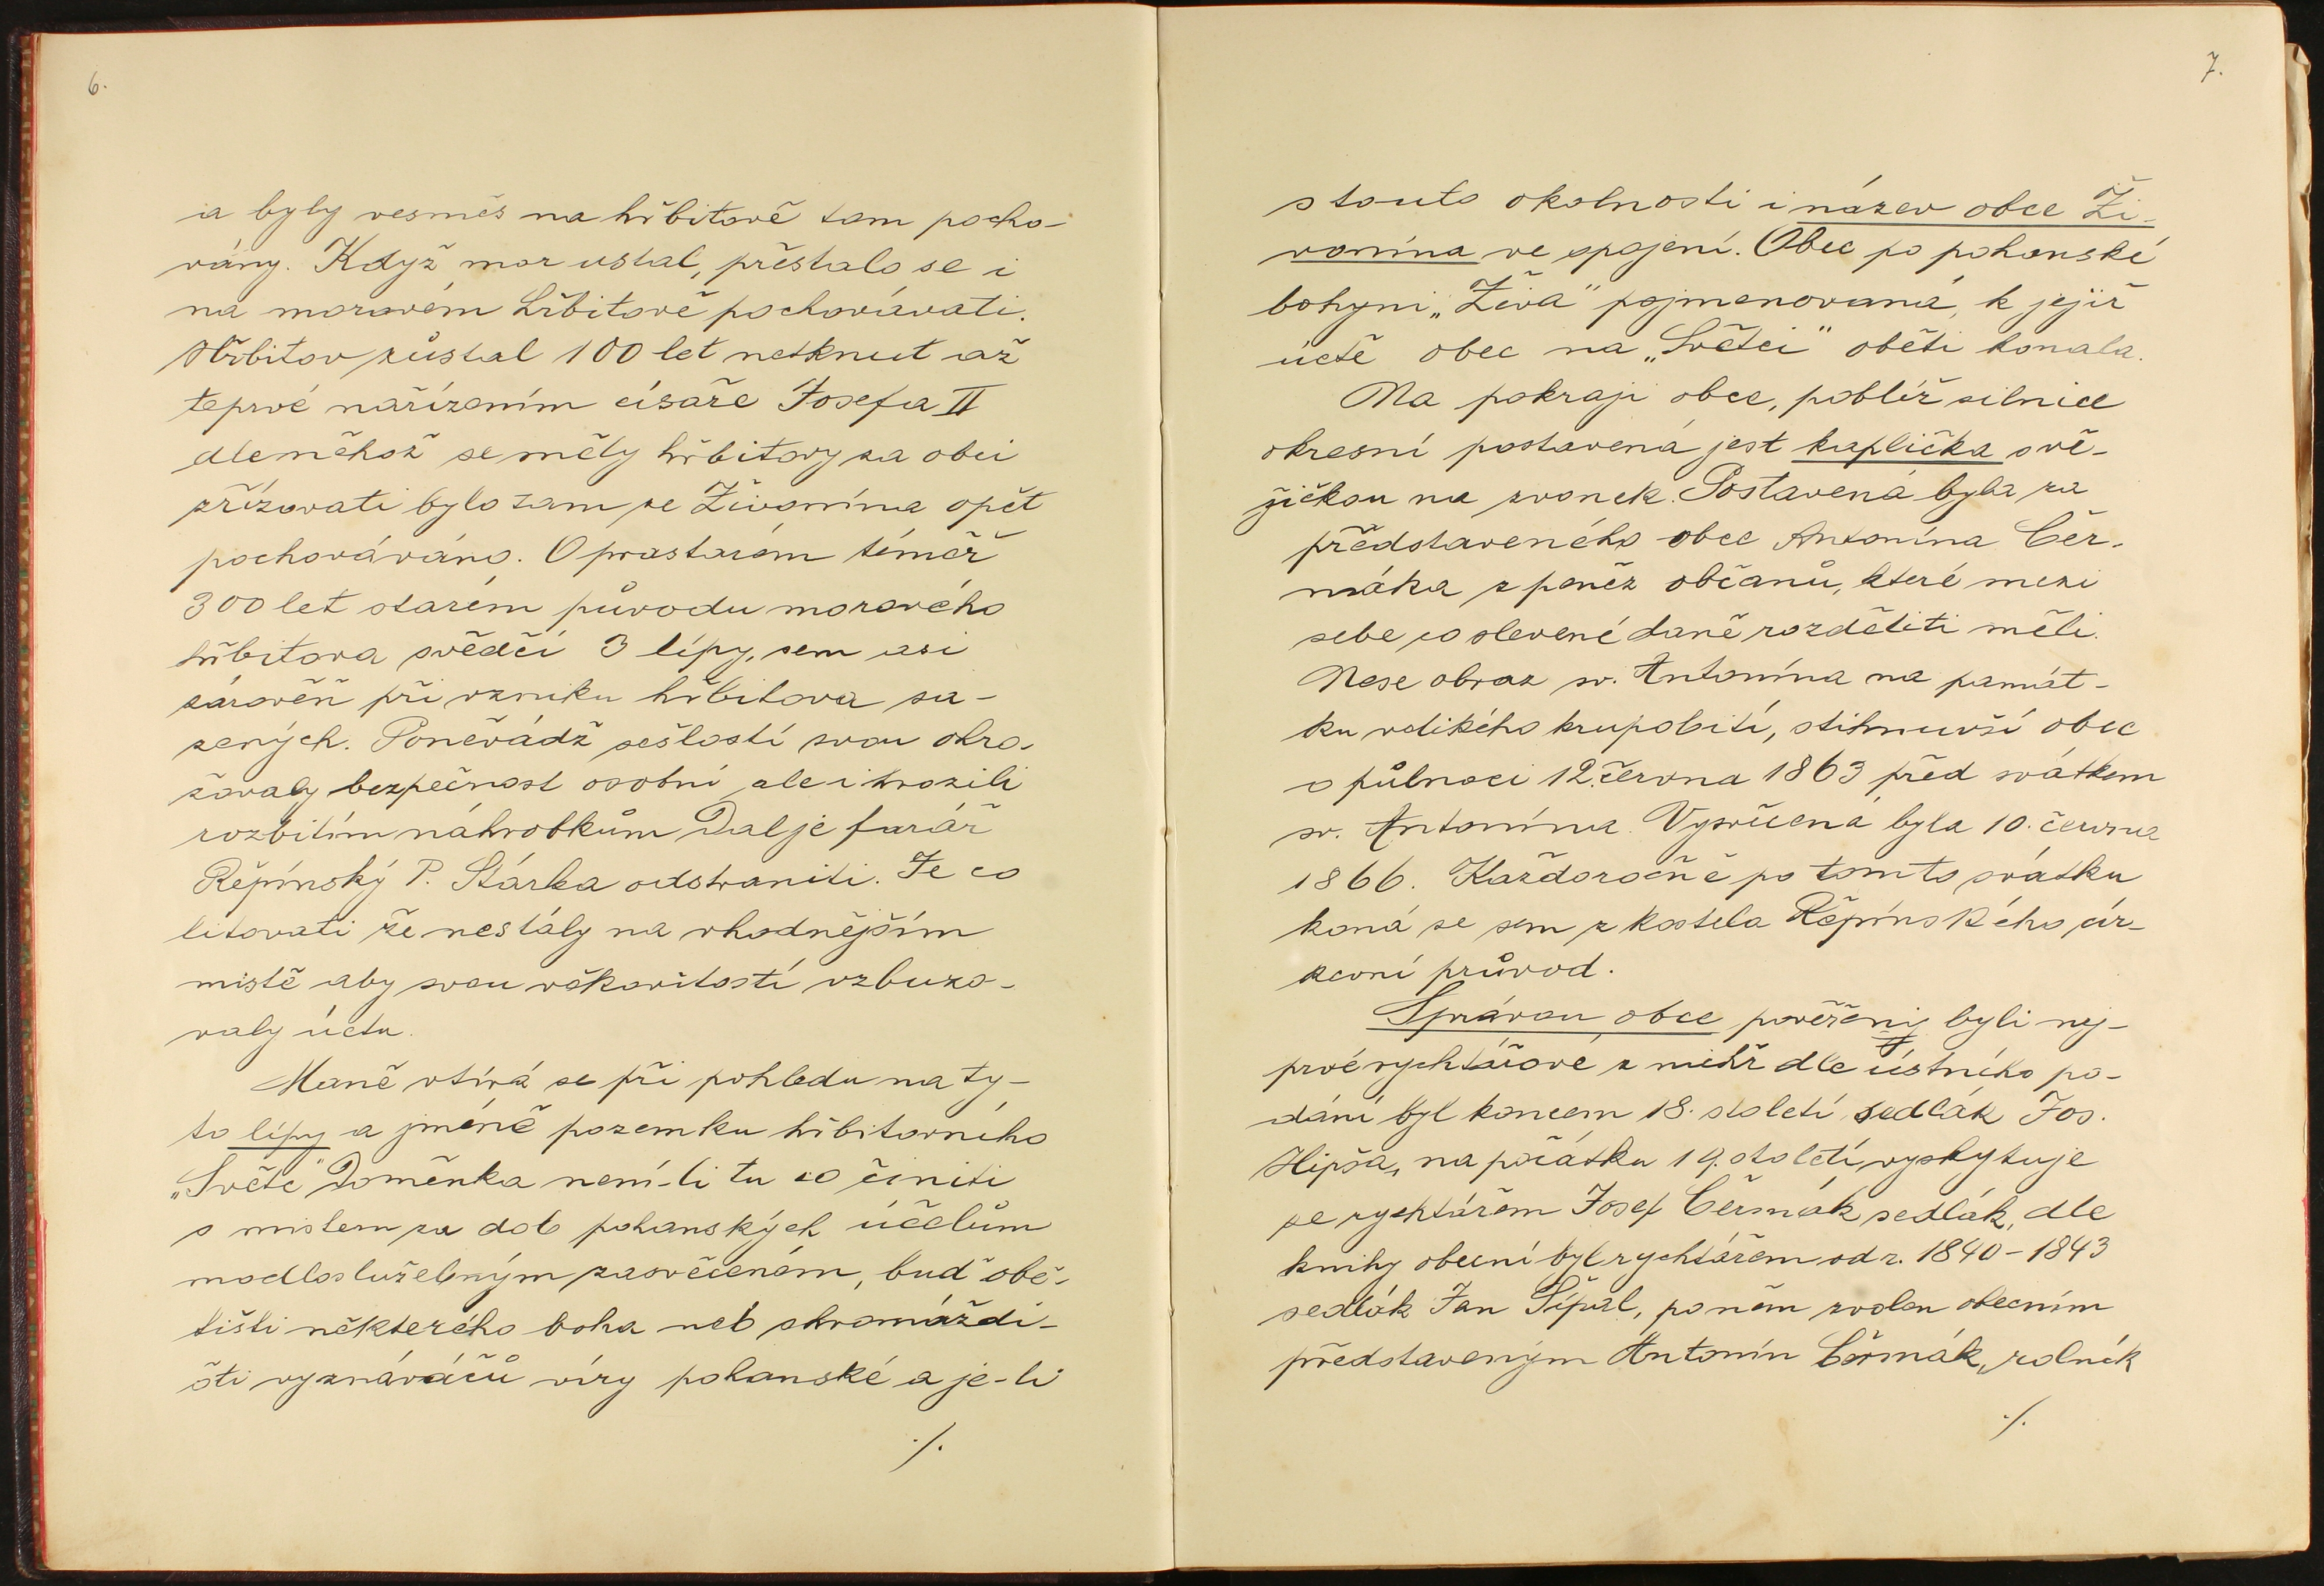 6.
a byly vesměs na hřbitově tam pocho-
vány. Když mor ustal, přestalo se i
na morovém hřbitově pochovávati.
Hřbitov zůstal 100 let netknut až
teprvé nařízením císaře Josefa II
dle něhož se měly hřbitovy za obcí
zřízovati bylo tam ze Živonína opět
pochováváno. O prastarém téměř
300 let starém původu morového
hřbitova svědčí 3 lípy, sem asi
zároveň při vzniku hřbitova sa-
zených. Poněvádž sešlostí svou ohro-
žovaly bezpečnost osobní ale i hrozili
rozbitím náhrobkům Dal je farář
Řepínský P. Stárka odstraniti. Je co
litovati že nestály na vhodnějším
místě aby svou věkovitostí vzbuzo-
valy úctu.
Maně vtírá se při pohledu na ty-
to lípy a jméně pozemku hřbitovního
„Světé" Doměnka není-li tu co činiti
s místem za dob pohanských účelům
modloslužebným zasvěceném, buď obě-
tišti některého boha neb shromáždi-
šti vyznáváčů víry pohanské a je-li
./.
7.
s touto okolností i název obce Ži-
vonína ve spojení. Obec po pohanské
bohyni „Živa" pojmenovaná, k jejíž
úctě obec na „Světci" oběti konala.
Na pokraji obce, poblíž silnice
okresní postavená jest kaplička s vě-
žičkou na zvonek. Postavená byla za
představeného obce Antonína Čer-
máka z peněz občanů, které mezi
sebe co slevené daně rozděliti měli.
Nese obraz sv. Antonína na památ-
ku velikého krupobití, stihnuvší obec
o půlnoci 12. června 1863 před svátkem
sv. Antonína. Vysvěcená byla 10. června
1866. Každoročně po tomto svátku
koná se sem z kostela Řepínského cír-
kevní průvod.
Správou obce pověřeni byli nej-
prvé rychtářové z nichž dle ústního po-
dání byl koncem 18. století sedlák Jos.
Hipša, na počátku 19. století vyskytuje
se rychtářem Josef Čermák sedlák, dle
knihy obecní byl rychtářem od r. 1840-1843
sedlák Jan Šípal, po něm zvolen obecním
představeným Antonín Čermák, rolník
./.